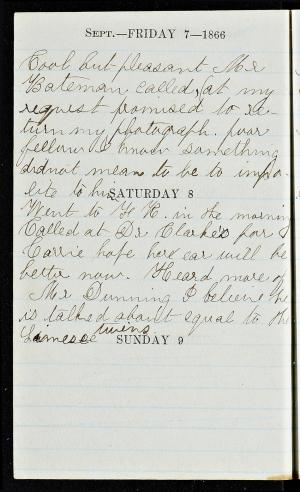 SEPT.—FRIDAY 7—1866
Cool but pleasant Mr
Bateman called, at my
request promised to re-
turn my photograph. poor
fellow I know something
did not mean to be to impo-
lite to him
SATURDAY 8
Went to H. in the morning
Called at Dr Clarke's poor
Carrie hope her ear will be
better now. Heard more of
Mr Dunning I believe he
is talked about equal to the
Siamese twins
SUNDAY 9